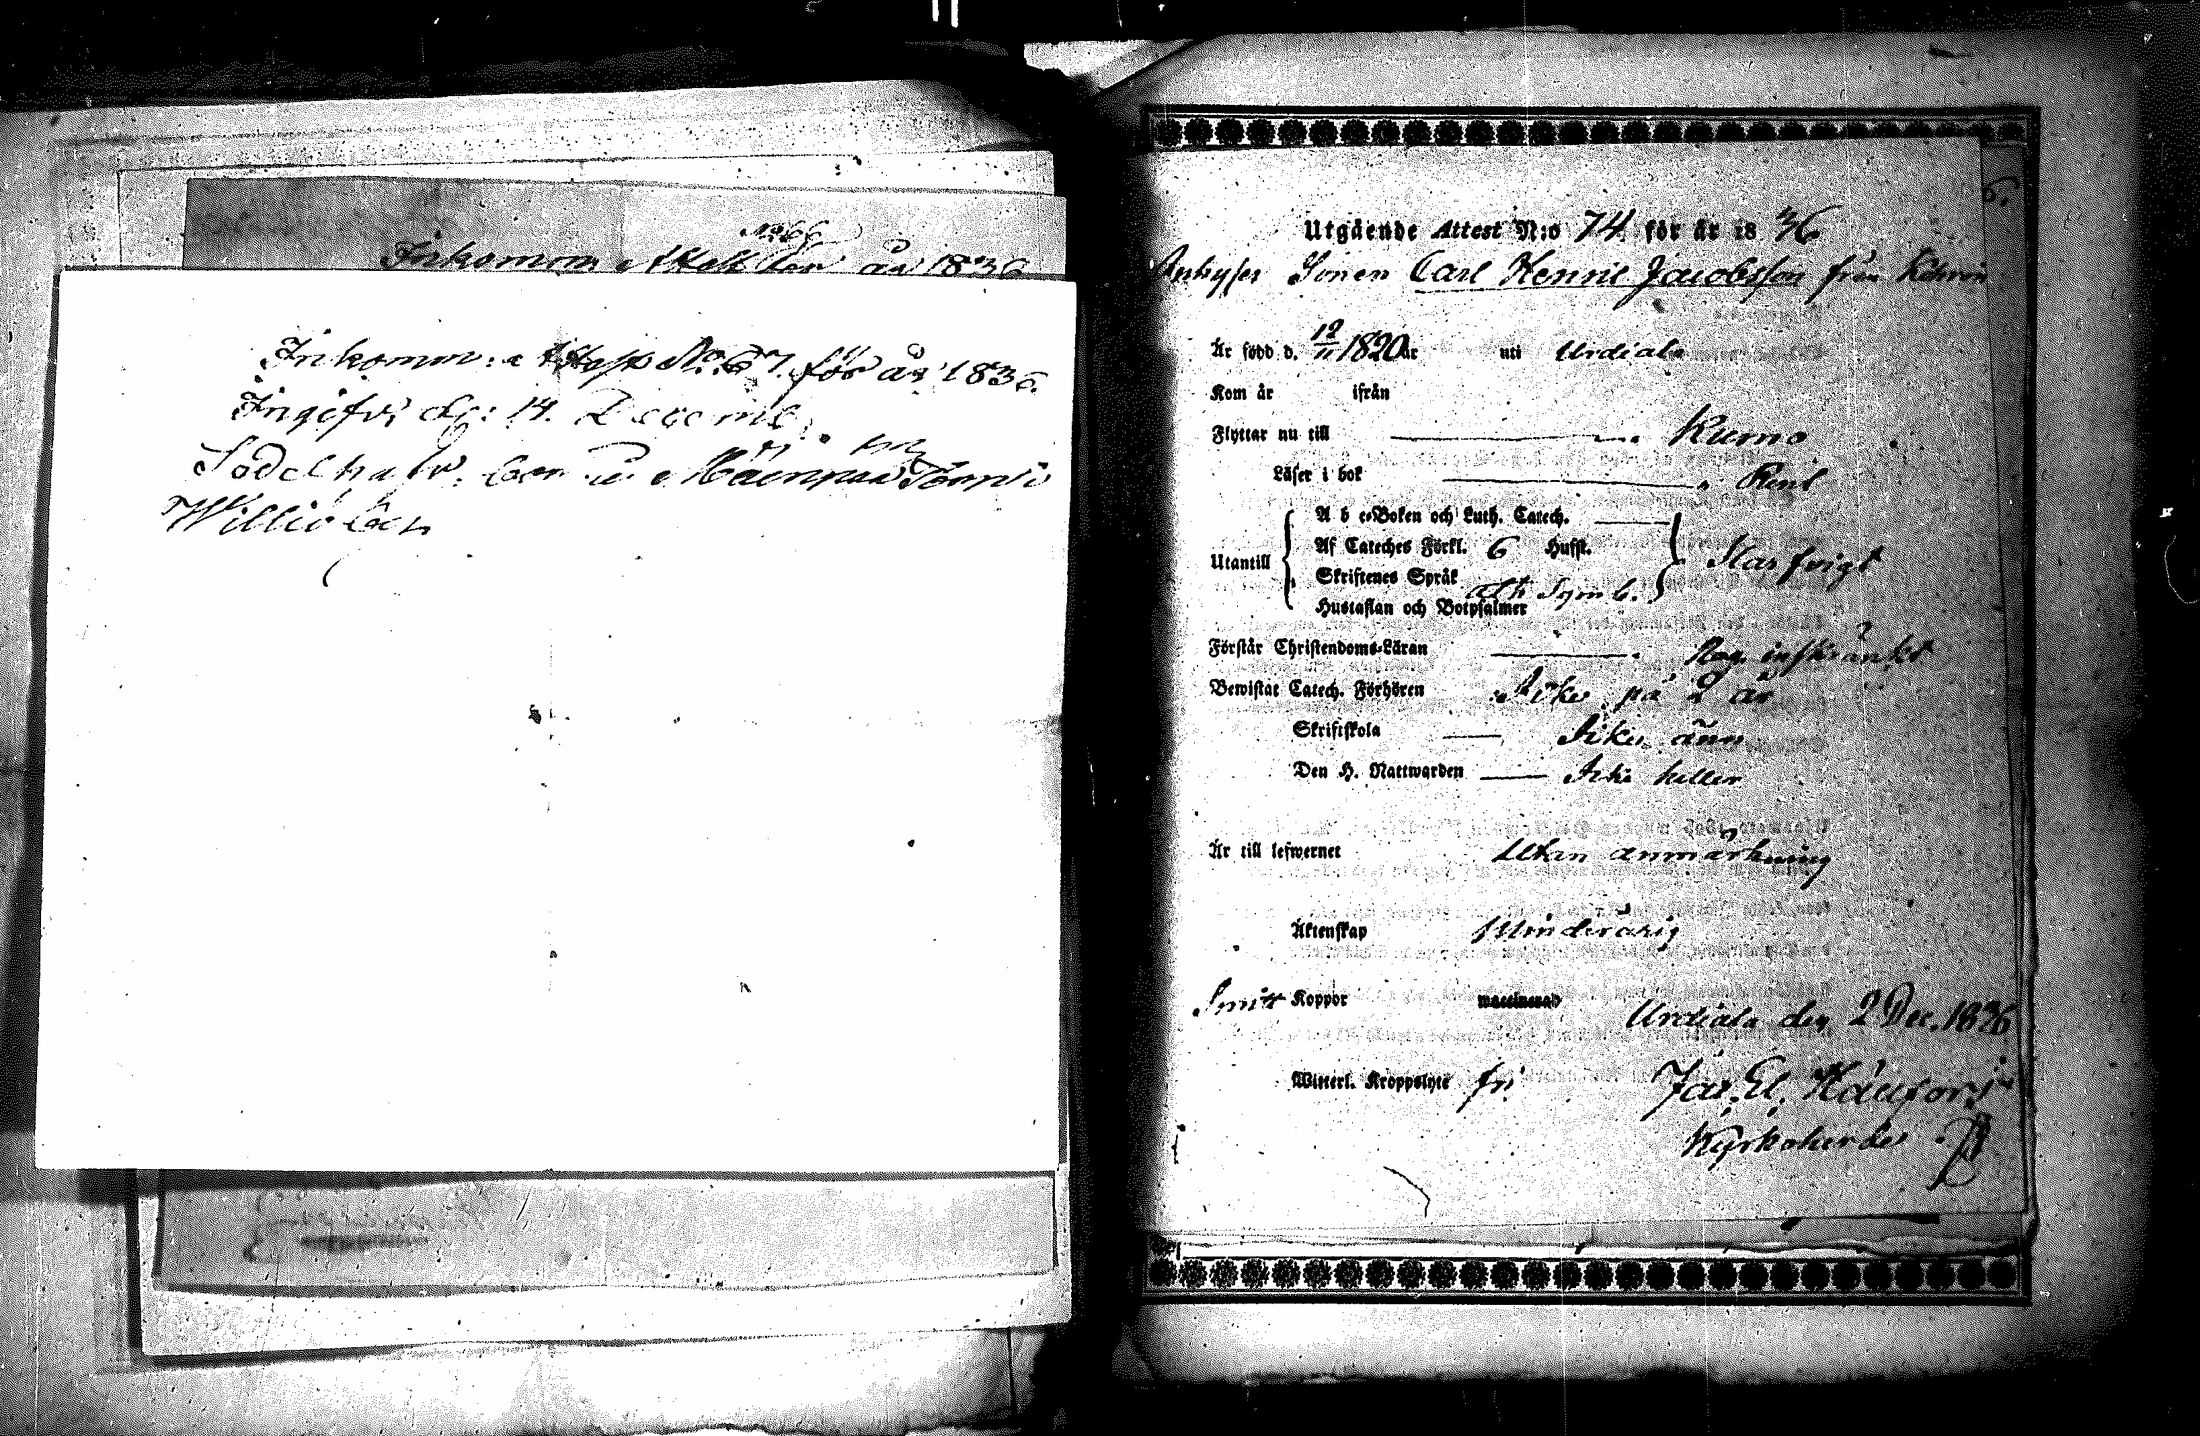 No 66
Inkommen Attest för år 1836
Inkomm: Attest No. 67. för år 1836.
Ingifv: d: 14. Decemb.
Utgående Attest N:o 74 för år 1836
Inhyses Sonen Carl Henric Jacobsson från
Är född d. 12/11 1820 år uti Urdiala
Kom år ifrån
Flyttar nu till Kumo
Läser i bok Rent
A b c-Boken och Luth. Catech.
Af Cateches Förkl. 6 Hufst.
Utantill
Skriftenes Språk
ath Symb.
Hustaflan och Botpsalmer
Förstår Christendoms-Läran inskränkt
Bewistat Catech. Förhören Icke på 2 år
Skriftskola Icke ännu
Den H. Nattwarden Icke heller
Är till lefwernet Utan anmärkning
Äktenskap Minderårig
Koppor waccinerad
Urdiala den 2 Dec. 1836
Witterl. Kroppslyte fri
Kyrkoherde